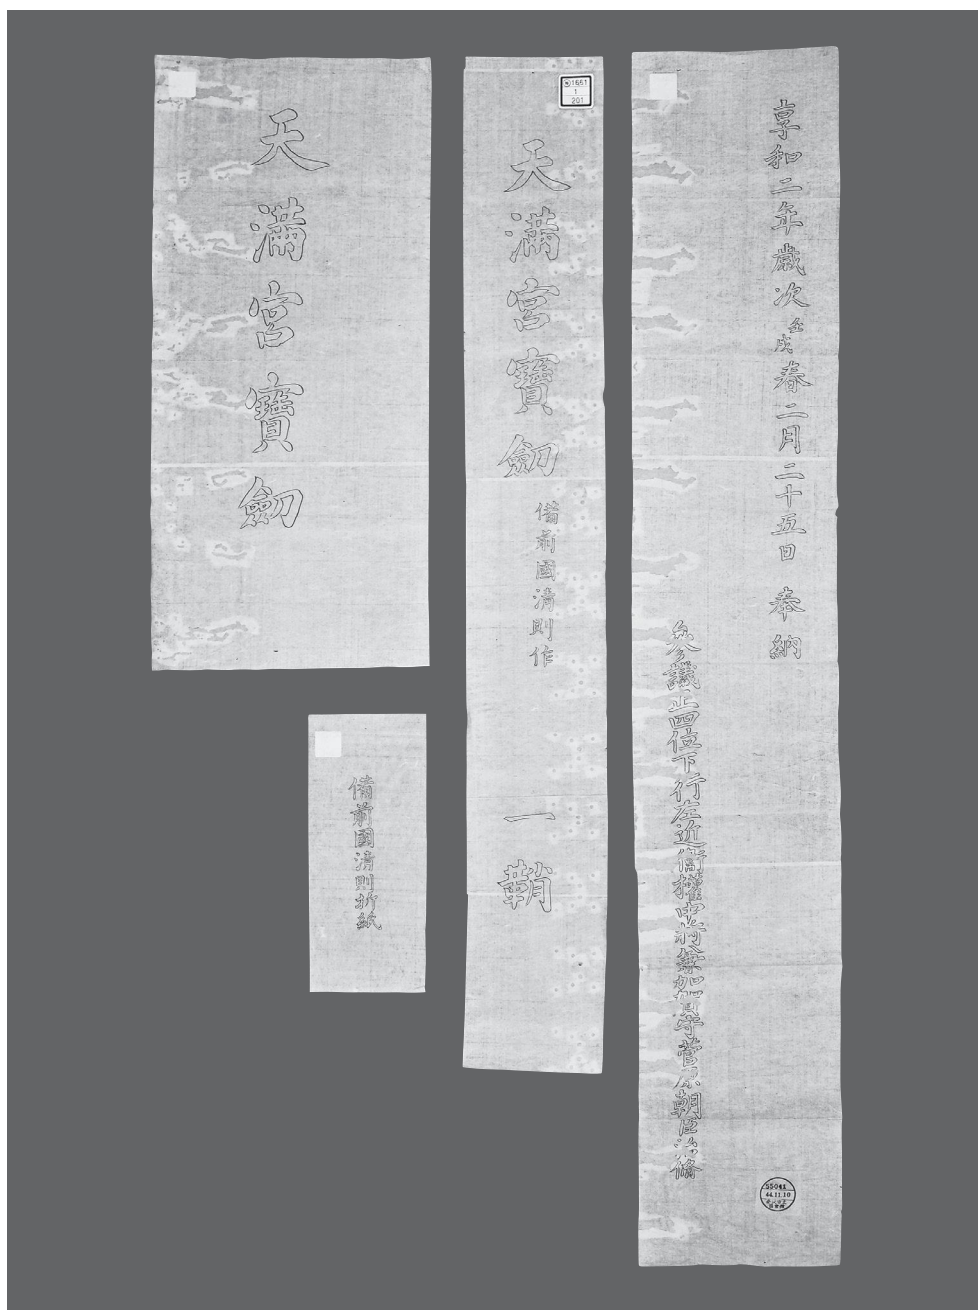 享和二年歳次壬戌春二月二十五日 奉納
参議正四位下行左近衛権中将兼加賀守菅原朝臣治脩
55041
44.11.10
1661
1
201
天満宮寶劔
備前國清則作
一鞘
天満宮寶劔
備前國清則折紙